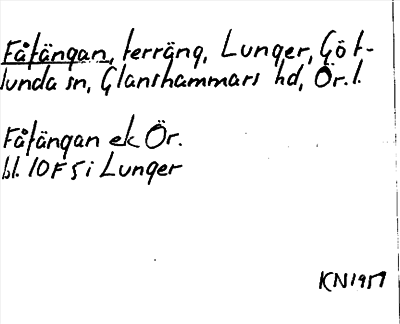 Fåfängan, terräng, Lunger, Göt-
lunda sn, Glanshammars hd, Ör. l.
Fåfängan ek Ör.
bl. 10F 5i Lunger
KN1957